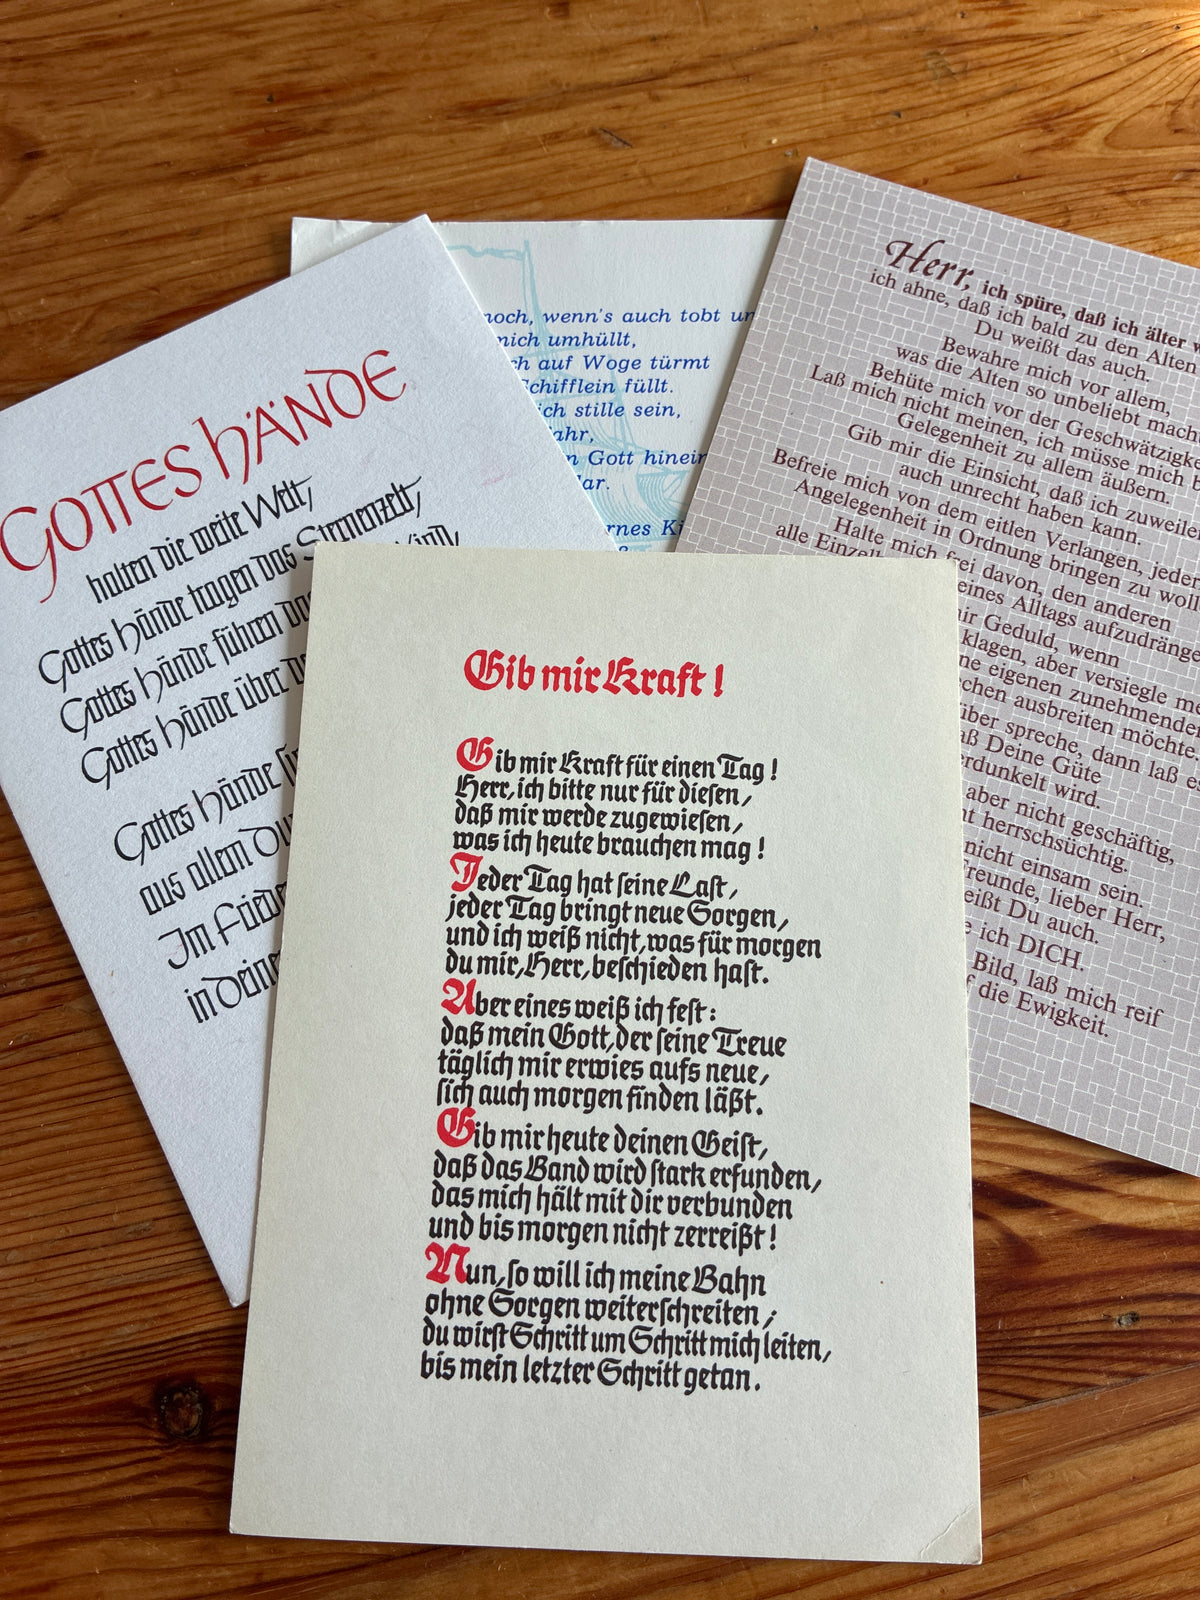 GOTTES HÄNDE
halten die weite Welt,
Gottes Hände tragen das Sternenzelt,
Gottes Hände führen das Wind,
Gottes Hände über
Gottes Hände
aus allem
Im
in Deine
noch, wenn's auch tobt
mich umhüllt,
auf Woge türmt
Schifflein füllt.
ich stille sein,
Gott
Herr, ich spüre, daß ich älter
ich ahne, daß ich bald zu den Alten
Du weißt das auch.
Bewahre mich vor allem,
was die Alten so unbeliebt macht
Behüte mich vor der
Laß mich nicht meinen, ich müsse mich
Gelegenheit zu allem äußern.
Gib mir die Einsicht, daß ich zuweilen
auch unrecht haben kann.
Befreie mich von dem eitlen Verlangen,
Angelegenheit in Ordnung bringen zu
Halte mich frei davon, den anderen
alle Alltags
Geduld, wenn
klagen, aber versiegle
eigenen zunehmenden
ausbreiten möchte.
spreche, dann laß
Deine Güte
wird.
aber nicht geschäftig,
herrschsüchtig.
nicht einsam sein.
Freunde, lieber Herr,
Du auch.
ich DICH.
Bild, laß mich reif
die Ewigkeit.
Gib mir Kraft!
Gib mir Kraft für einen Tag!
Herr, ich bitte nur für diesen,
daß mir werde zugewiesen,
was ich heute brauchen mag!
Jeder Tag hat seine Last,
jeder Tag bringt neue Sorgen,
und ich weiß nicht, was für morgen
du mir, Herr, beschieden hast.
Aber eines weiß ich fest:
daß mein Gott, der seine Treue
täglich mir erwies aufs neue,
sich auch morgen finden läßt.
Gib mir heute deinen Geist,
daß das Band wird stark erfunden,
das mich hält mit dir verbunden
und bis morgen nicht zerreißt!
Nun, so will ich meine Bahn
ohne Sorgen weiterschreiten;
du wirst Schritt um Schritt mich leiten,
bis mein letzter Schritt getan.